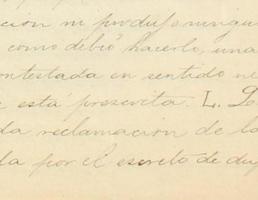 ción ni produjo ningu
como debió hacerlo, una
ontestada en sentido ne
está prescrita. L. Lo
da reclamación de lo
la por el escrito de du